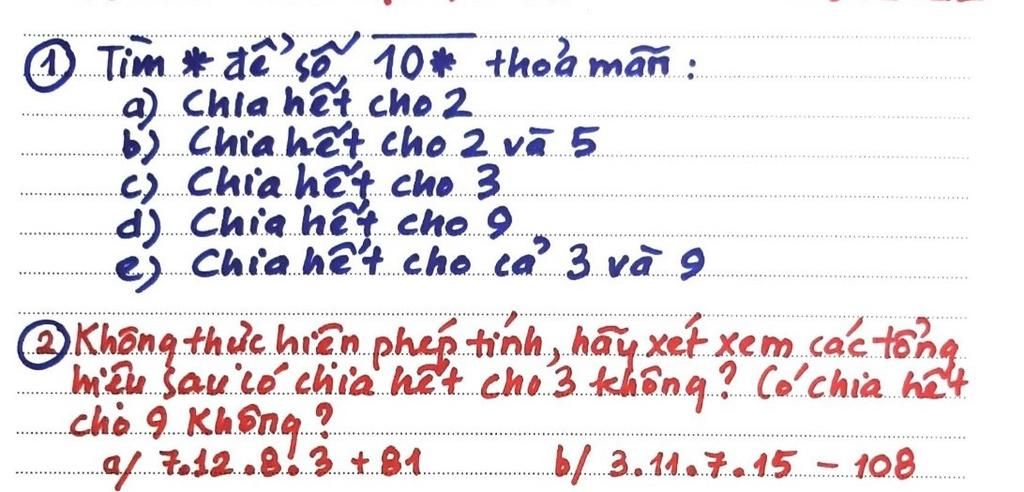 ① Tìm * để số 10* thoả mãn :
a) Chia hết cho 2
b) Chia hết cho 2 và 5
c) Chia hết cho 3
d) Chia hết cho 9
e) Chia hết cho cả 3 và 9
② Không thực hiện phép tính, hãy xét xem các tổng
hiệu sau có chia hết cho 3 không? Có chia hết
cho 9 không?
a/ 7.12.8.3 + 81 b/ 3.11.7.15 - 108